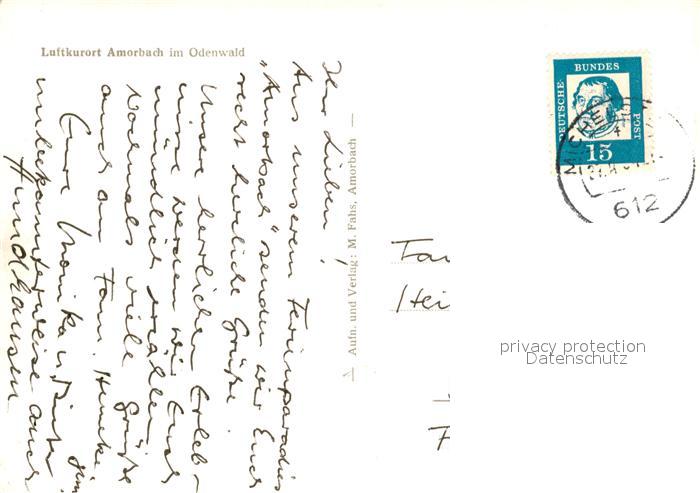 Luftkurort Amorbach im Odenwald
Ihr Lieben!
Aus unserem Ferienparadies
"Amorbach" senden wir Euch
recht herzliche Grüße.
Unsere herrlichen Erleb-
nisse werden wir Euch
mündlich erzählen.
Nochmals viele Grüße
auch an Fam.
Eure Monika u.
unbekannterweise auch
Aufn. und Verlag: M. Fahs, Amorbach
DEUTSCHE BUNDES POST
15
612
Fa
Hei
F
privacy protection
Datenschutz